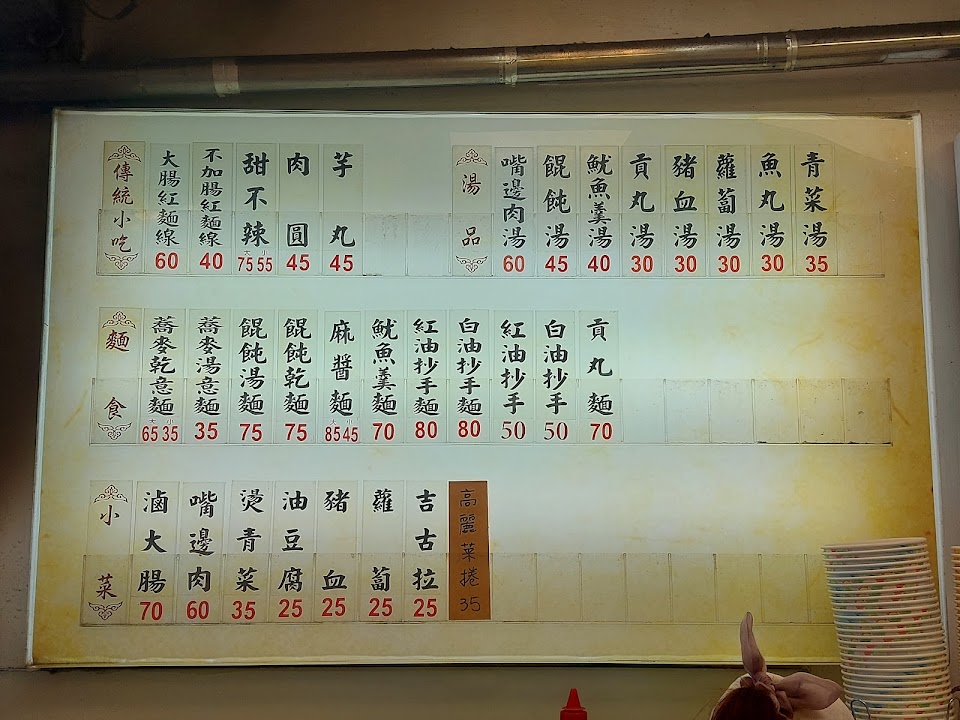 傳統小吃
大腸紅麵線 60
不加腸紅麵線 40
甜不辣 大75 小55
肉圓 45
芋丸 45
湯品
嘴邊肉湯 60
餛飩湯 45
魷魚羹湯 40
貢丸湯 30
豬血湯 30
蘿蔔湯 30
魚丸湯 30
青菜湯 35
麵食
蕎麥乾意麵 大65 小35
蕎麥湯意麵 35
餛飩湯麵 75
餛飩乾麵 75
麻醬麵 大85 小45
魷魚羹麵 70
紅油抄手麵 80
白油抄手麵 80
紅油抄手 50
白油抄手 50
貢丸麵 70
小菜
滷大腸 70
嘴邊肉 60
燙青菜 35
油豆腐 25
豬血 25
蘿蔔 25
吉古拉 25
高麗菜捲 35